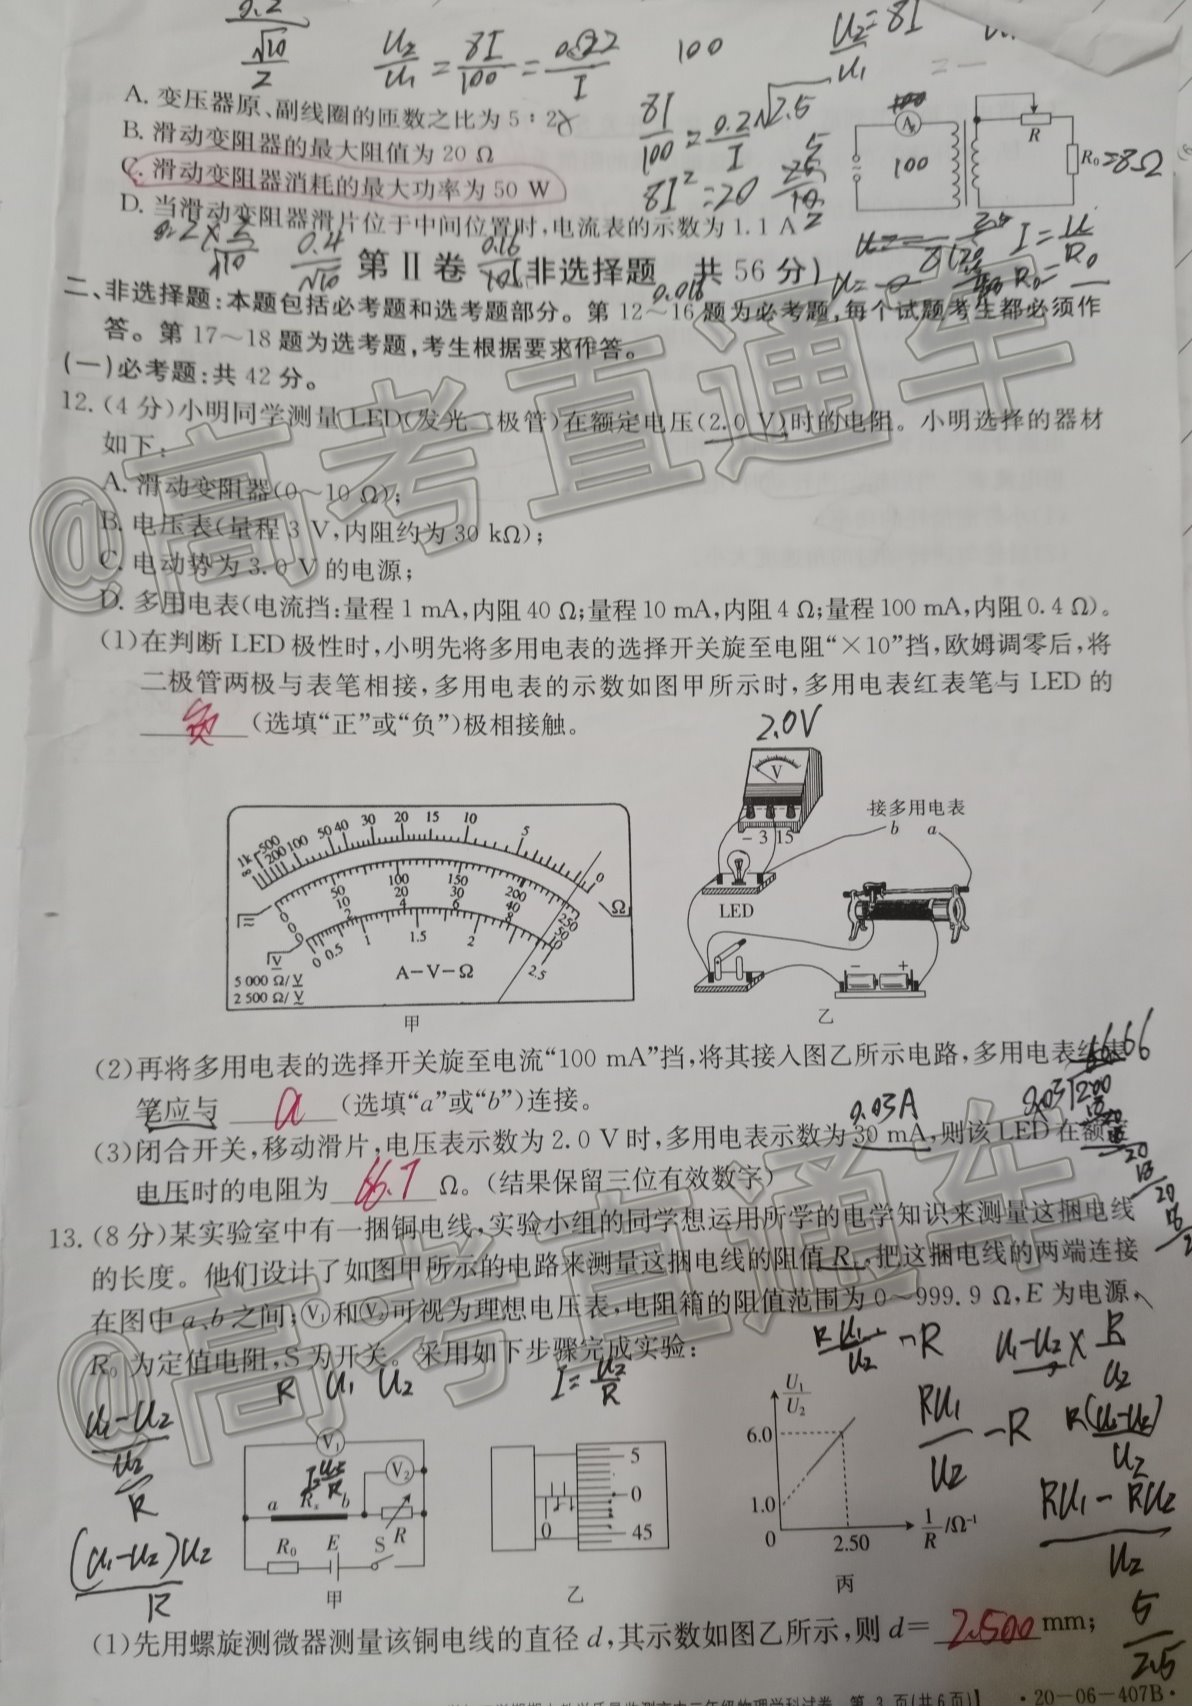 U₂/U₁ = 8I/100 = 0.2√2.5/I
100
U₂/U₁ = 8I
8I/100 = 0.2√2.5/I
8I²=20
A. 变压器原、副线圈的匝数之比为 5∶2
B. 滑动变阻器的最大阻值为 20 Ω
C. 滑动变阻器消耗的最大功率为 50 W
D. 当滑动变阻器滑片位于中间位置时,电流表的示数为 1.1 A
A
100
R
R₀=8Ω
第Ⅱ卷 (非选择题 共 56 分)
二、非选择题:本题包括必考题和选考题部分。第 12~16 题为必考题,每个试题考生都必须作
答。第 17~18 题为选考题,考生根据要求作答。
(一)必考题:共 42 分。
12.(4 分)小明同学测量 LED(发光二极管)在额定电压(2.0 V)时的电阻。小明选择的器材
如下:
A. 滑动变阻器(0~10 Ω);
B. 电压表(量程 3 V,内阻约为 30 kΩ);
C. 电动势为 3.0 V 的电源;
D. 多用电表(电流挡:量程 1 mA,内阻 40 Ω;量程 10 mA,内阻 4 Ω;量程 100 mA,内阻 0.4 Ω)。
(1)在判断 LED 极性时,小明先将多用电表的选择开关旋至电阻“×10”挡,欧姆调零后,将
二极管两极与表笔相接,多用电表的示数如图甲所示时,多用电表红表笔与 LED 的
负 (选填“正”或“负”)极相接触。
2.0V
1k 500 200 100 50 40 30 20 15 10 5 0
∞ Ω
0 50 100 150 200 250
0 10 20 30 40 50
0 2 4 6 8 10
0 0.5 1 1.5 2 2.5
V
A-V-Ω
5 000 Ω/V
2 500 Ω/V
甲
V
- 3 15
接多用电表
b a
LED
- +
乙
(2)再将多用电表的选择开关旋至电流“100 mA”挡,将其接入图乙所示电路,多用电表红表
笔应与 a (选填“a”或“b”)连接。
0.03A
(3)闭合开关,移动滑片,电压表示数为 2.0 V 时,多用电表示数为 30 mA,则该 LED 在额定
电压时的电阻为 66.7 Ω。(结果保留三位有效数字)
13.(8 分)某实验室中有一捆铜电线,实验小组的同学想运用所学的电学知识来测量这捆电线
的长度。他们设计了如图甲所示的电路来测量这捆电线的阻值 Rₓ,把这捆电线的两端连接
在图中 a、b 之间;V₁和V₂可视为理想电压表,电阻箱的阻值范围为 0~999.9 Ω,E 为电源,
R₀ 为定值电阻,S 为开关。采用如下步骤完成实验:
R U₁ U₂
I=U₂/R
RU₁/U₂ -R
U₁-U₂ × R/U₂
RU₁/U₂ -R
R(U₁-U₂)/U₂
RU₁-RU₂/U₂
(U₁-U₂)U₂/R
V₁
V₂
a Rₓ b
R₀ E S R
甲
5
0
45
0
乙
U₁/U₂
6.0
1.0
0 2.50 1/R /Ω⁻¹
丙
(1)先用螺旋测微器测量该铜电线的直径 d,其示数如图乙所示,则 d= 2.500 mm;
5/2.5
第 3 页(共 6 页)】 ·20-06-407B·
@高考直通车
@高考直通车